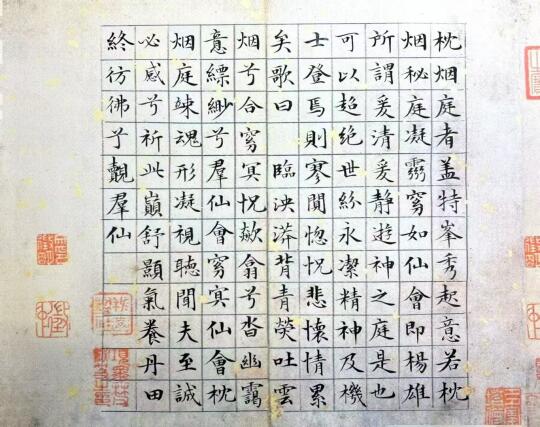 枕烟庭者盖特峯秀起意若枕
烟秘庭凝霛窅如仙會即楊雄
所謂爰清爰静遊神之庭是也
可以超絶世紛永潔精神及機
士登焉則寥閴惚怳悲懷情累
矣歌曰 臨泱漭背青熒吐雲
烟兮合窅冥怳歘翕兮沓幽靄
意縹緲兮羣仙會窅冥仙會枕
烟庭竦魂形凝視聽聞夫至誠
必感兮祈此巔舒顥氣養丹田
終彷彿兮覿羣仙